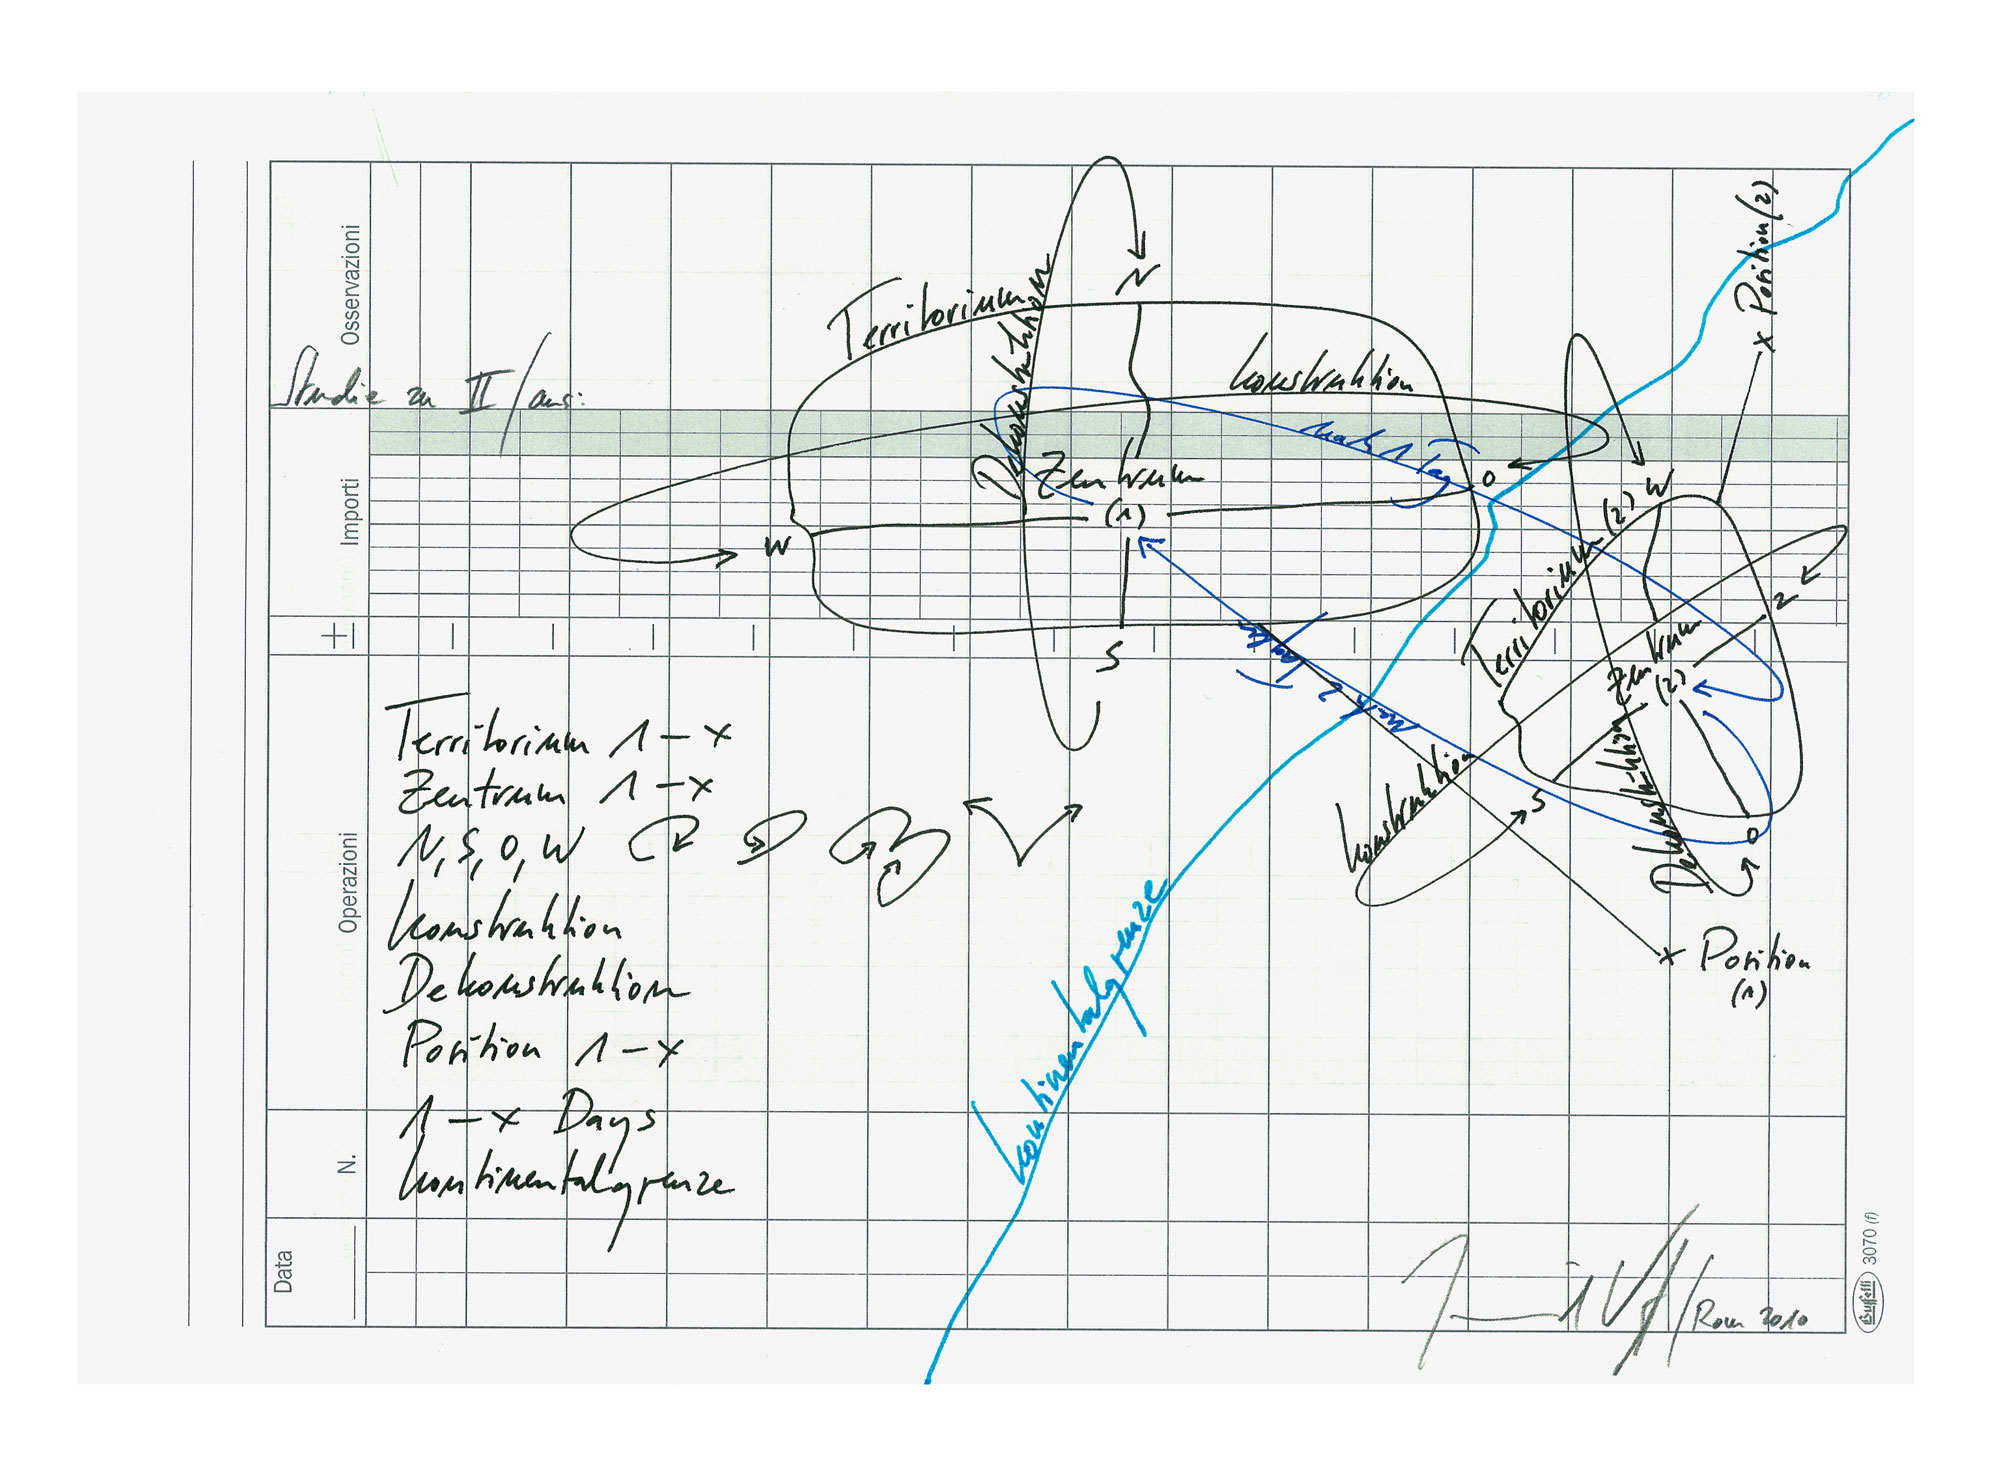 Osservazioni
Studie zu II/aus:
Importi
+|-
Operazioni
N.
Data
Territorium
Dekonstruktion
N
Konstruktion
Zentrum
(1)
W
O
S
nach 1 Tag
nach 2 Tagen
x Position (2)
Territorium (2)
W
N
Zentrum
(2)
S
O
Konstruktion
Dekonstruktion
x Position
(1)
Kontinentalgrenze
Territorium 1 – x
Zentrum 1 – x
N, S, O, W
Konstruktion
Dekonstruktion
Position 1 – x
1 – x Days
Kontinentalgrenze
/Rom 2010
Buffetti 3070 (f)